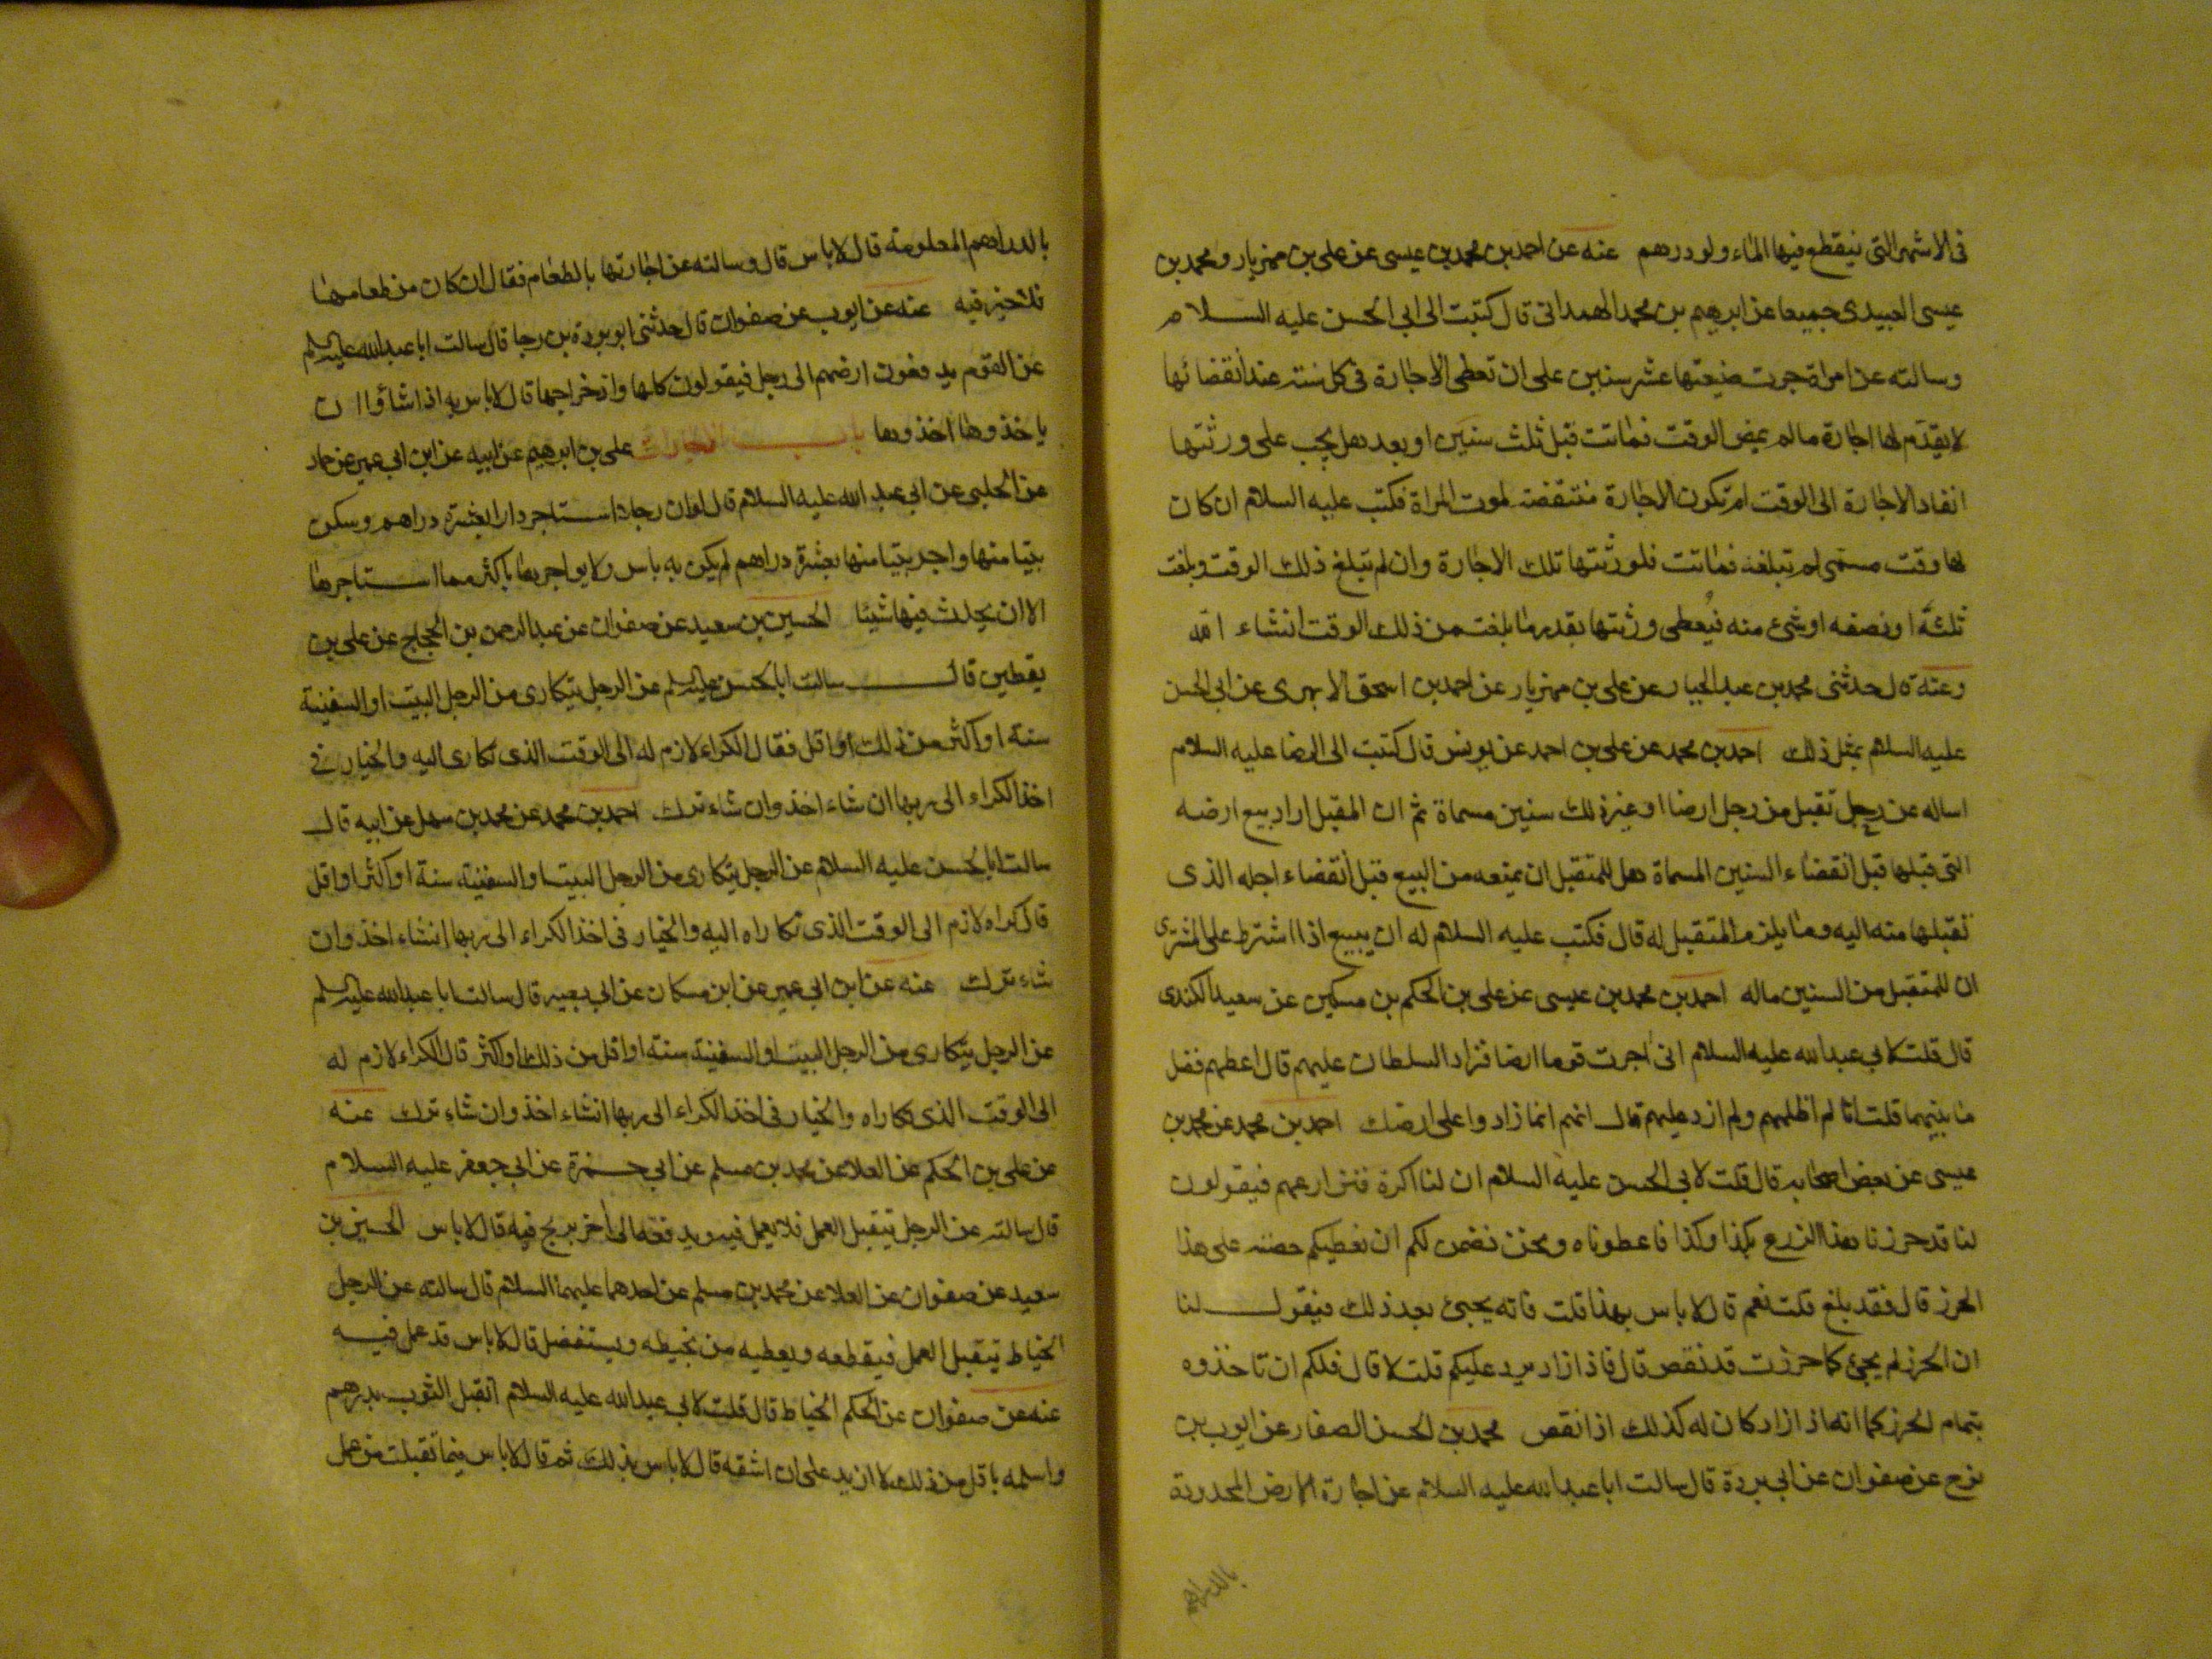 فى الاشهر التى ينقطع فيها الماء ولو درهم عنه عن احمد بن محمد بن عيسى عن على بن مهزيار ومحمد بن
عيسى العبيدى جميعا عن ابرهيم بن محمد الهمدانى قال كتبت الى ابى الحسن عليه السلام
وسالته عن امراة جرت ضيعتها عشر سنين على ان تعطى الاجارة فى كل سنة عند انقضائها
لا يقدم لها اجارة مالم يمض الوقت فماتت قبل ثلث سنين او بعد هل يجب على ورثتها
انفاد الاجارة الى الوقت ام تكون الاجارة منتقضة لموت المراة فكتب عليه السلام ان كان
لها وقت مسمى لم تبلغه فماتت فلورثتها تلك الاجارة وان لم تبلغ ذلك الوقت وبلغت
ثلثه او نصفه او شئ منه فيعطى ورثتها بقدر ما بلغت من ذلك الوقت انشاء الله
وعنه قال حدثنى محمد بن عبد الجبار عن على بن مهزيار عن احمد بن اسحق الابهرى عن ابى الحسن
عليه السلام بمثل ذلك احمد بن محمد عن على بن احمد عن يونس قال كتبت الى الرضا عليه السلام
اساله عن رجل تقبل من رجل ارضا او غير ذلك سنين مسماة ثم ان المقبل اراد بيع ارضه
التى قبلها قبل انقضاء السنين المسماة هل للمتقبل ان يمنعه من البيع قبل انقضاء اجله الذى
تقبلها منه اليه وما يلزم المتقبل له قال فكتب عليه السلام له ان يبيع اذا اشترط على المشترى
ان للمتقبل من السنين ماله احمد بن محمد بن عيسى عن على بن الحكم بن مسكين عن سعيد الكندى
قال قلت لابى عبد الله عليه السلام انى اجرت قوما ارضا فزاد السلطان عليهم قال اعطهم فضل
ما بينهما قلت انا لم اظلمهم ولم ازد عليهم قال انهم انما زادوا على ارضك احمد بن محمد عن محمد بن
عيسى عن بعض اصحابه قال قلت لابى الحسن عليه السلام ان لنا اكرة فنزارعهم فيقولون
لنا قد حرزنا هذا الزرع بكذا وكذا فاعطوناه ونحن نضمن لكم ان نعطيكم حصته على هذا
الحرز قال فقد بلغ قلت نعم قال لا باس بهذا قلت فانه يجئ بعد ذلك فيقول لنا
ان الحرز لم يجئ كما حرزت قد نقص قال فاذا زاد يرد عليكم قلت لا قال فلكم ان تاخذوه
بتمام الحرز كما انه اذا زاد كان له كذلك اذا نقص محمد بن الحسن الصفار عن ايوب بن
نوح عن صفوان عن ابى بردة قال سالت ابا عبد الله عليه السلام عن اجارة الارض المحدودة
بالدراهم
بالدراهم المعلومة قال لا باس قال وسالته عن اجارتها بالطعام فقال ان كان من طعامها
فلا خير فيه عنه عن ايوب عن صفوان قال حدثنى ابو بردة بن رجا قال سالت ابا عبد الله عليه السلم
عن القوم يدفعون ارضهم الى رجل فيقولون كلها واد خراجها قال لا باس به اذا شاؤا ان
ياخذوها اخذوها باب الاجارات على بن ابرهيم عن ابيه عن ابن ابى عمير عن حماد
عن الحلبى عن ابى عبد الله عليه السلام قال لو ان رجلا استاجر دارا بعشرة دراهم وسكن
بيتا منها واجر بيتا منها بعشرة دراهم لم يكن به باس ولا يواجرها باكثر مما استاجرها
الا ان يحدث فيها شيئا الحسين بن سعيد عن صفوان عن عبد الرحمن بن الحجاج عن على بن
يقطين قال سالت ابا الحسن عليه السلم عن الرجل يتكارى من الرجل البيت او السفينة
سنة او اكثر من ذلك او اقل فقال الكراء لازم له الى الوقت الذى تكارى اليه والخيار فى
اخذ الكراء الى ربها ان شاء اخذ وان شاء ترك احمد بن محمد عن محمد بن سهل عن ابيه قال
سالت ابا الحسن عليه السلام عن الرجل يتكارى من الرجل البيت او السفينة سنة او اكثر او اقل
قال كراه لازم الى الوقت الذى تكاراه اليه والخيار فى اخذ الكراء الى ربها انشاء اخذ وان
شاء ترك عنه عن ابن ابى عمير عن ابن مسكان عن ابى بصير قال سالت ابا عبد الله عليه السلم
عن الرجل يتكارى من الرجل البيت او السفينة سنة او اقل من ذلك او اكثر قال الكراء لازم له
الى الوقت الذى تكاراه والخيار فى اخذ الكراء الى ربها انشاء اخذ وان شاء ترك عنه
عن على بن الحكم عن العلا عن محمد بن مسلم عن ابى حمزة عن ابى جعفر عليه السلام
قال سالته عن الرجل يتقبل العمل فلا يعمل فيه ويدفعه الى اخر يربح فيه قال لا باس الحسين بن
سعيد عن صفوان عن العلا عن محمد بن مسلم عن احدهما عليهما السلام قال سالته عن الرجل
الخياط يتقبل العمل فيقطعه ويعطيه من يخيطه ويستفضل قال لا باس قد عمل فيه
عنه عن صفوان عن الحكم الخياط قال قلت لابى عبد الله عليه السلام اتقبل الثوب بدرهم
واسلمه باقل من ذلك لا ازيد على ان اشقه قال لا باس بذلك ثم قال لا باس فيما تقبلت من عمل